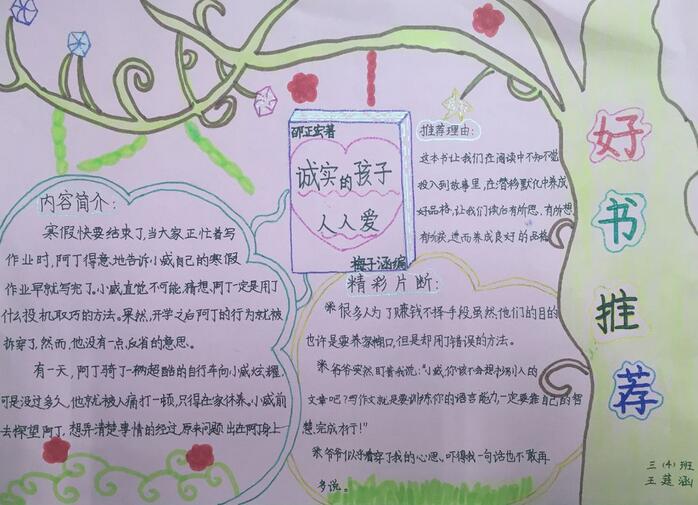 好书推荐
邵正宏著
诚实的孩子
人人爱
梅子涵编
推荐理由：
这本书让我们在阅读中不知不觉
投入到故事里，在潜移默化中养成
好品格，让我们读后有所思、有所想、
有所获，进而养成良好的品格
内容简介：
寒假快要结束了，当大家正忙着写
作业时，阿丁得意地告诉小威自己的寒假
作业早就写完了。小威直觉不可能，猜想，阿丁一定是用了
什么投机取巧的方法。果然，开学之后阿丁的行为就被
拆穿了，然而，他没有一点反省的意思。
有一天，阿丁骑了一辆超酷的自行车向小威炫耀，
可是没过多久，他就被人痛打一顿，只得在家休养。小威前
去探望阿丁，想弄清楚事情的经过，原来问题出在阿丁身上
精彩片断：
※很多人为了赚钱不择手段虽然，他们的目的
也许是要养家糊口，但是却用了错误的方法。
※爷爷突然盯着我说：“小威，你该不会想抄别人的
文章吧？写作文就是要训练你的语言能力，一定要靠自己的智
慧完成才行！”
※爷爷似乎看穿了我的心思，吓得我一句话也不敢再
多说。
三（4）班
王莛涵